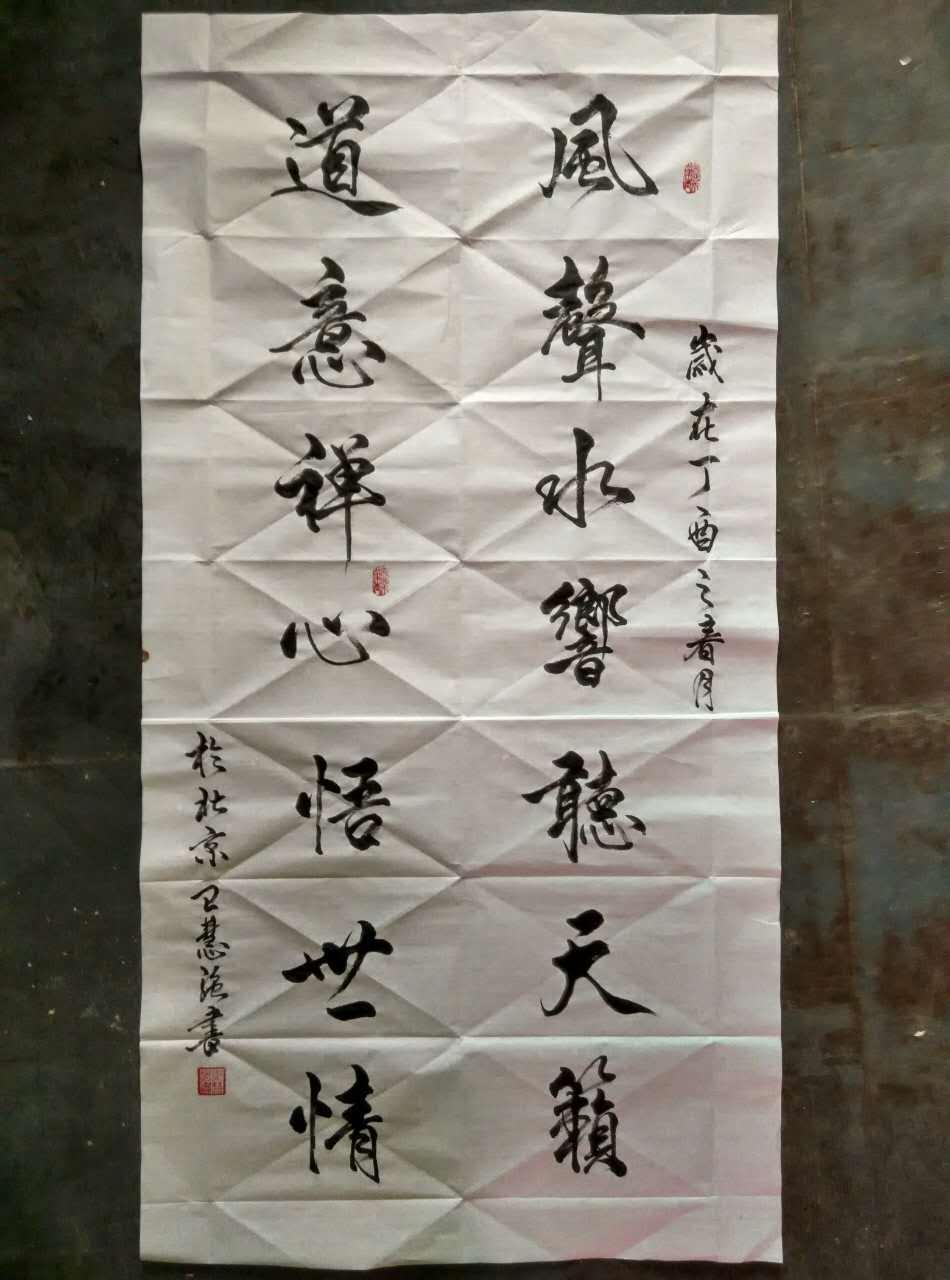 歲在丁酉之春月
風聲水響聽天籟
道意禅心悟世情
於北京 慧 書